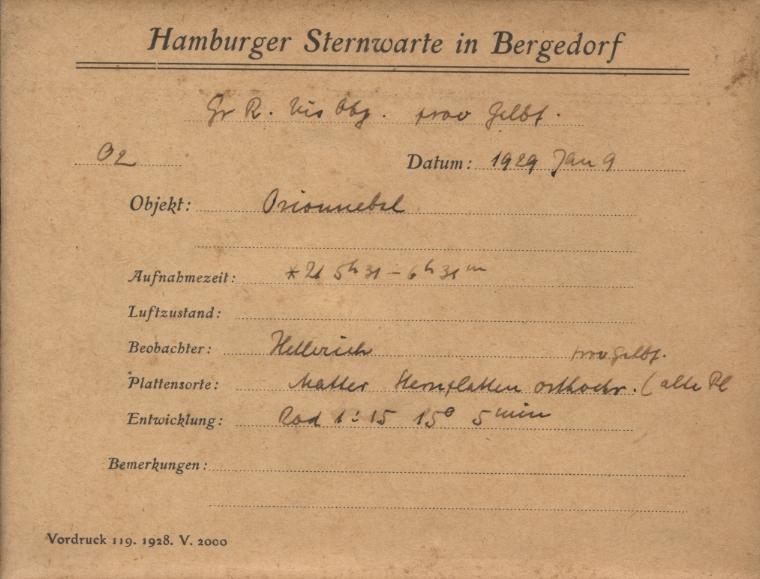 Hamburger Sternwarte in Bergedorf
Gr R. vis Obj. prov Gelbf.
O2
Datum: 1929 Jan 9
Objekt: Orionnebel
Aufnahmezeit: 5h 31 – 6h 31m
Luftzustand:
Beobachter: Hellerich prov. Gelbf.
Plattensorte: Matter Sternplatten orthochr. (alte Pl
Entwicklung: Rod 1:15 15° 5min
Bemerkungen:
Vordruck 119. 1928. V. 2000